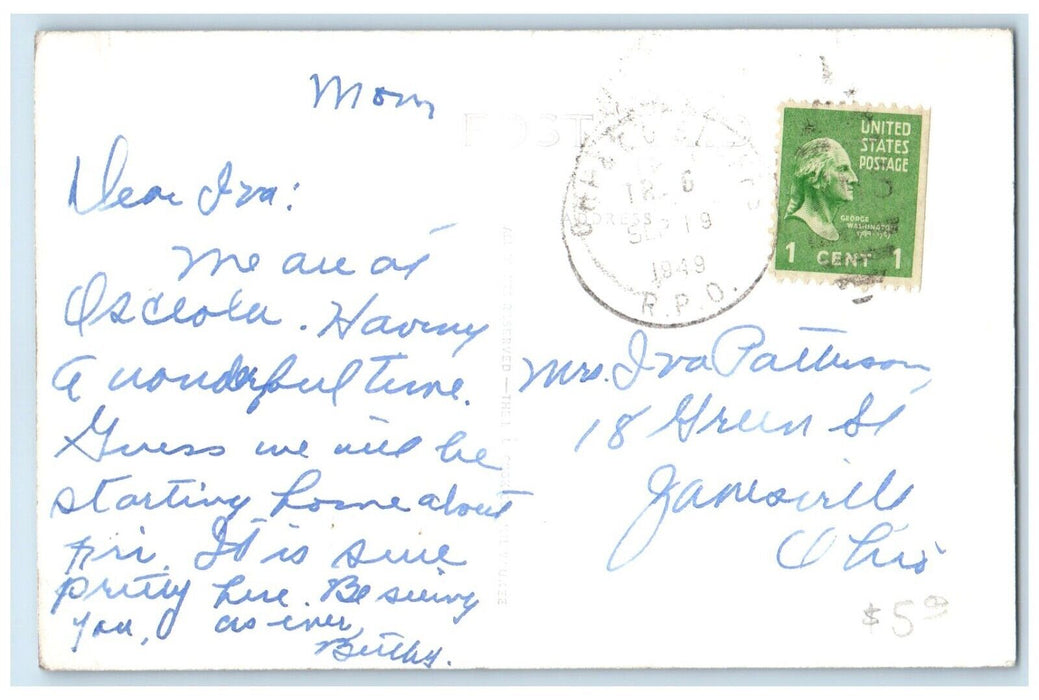 Mon
Dear Iva:
We are at
Osceola. Having
a wonderful time.
Guess we will be
starting home about
Fri. It is sure
pretty here. Be seeing
you, as ever,
POST
ADDRESS
TR. 6
SEP 19
1949
R.P.O.
UNITED
STATES
POSTAGE
GEORGE
WASHINGTON
1789-1797
1 CENT 1
Mrs. Iva Patterson
18 Green St
Zanesville
Ohio
$5